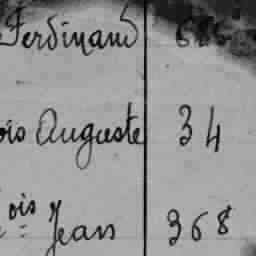 Ferdinand 686
ois Auguste 34
ois Jean 368